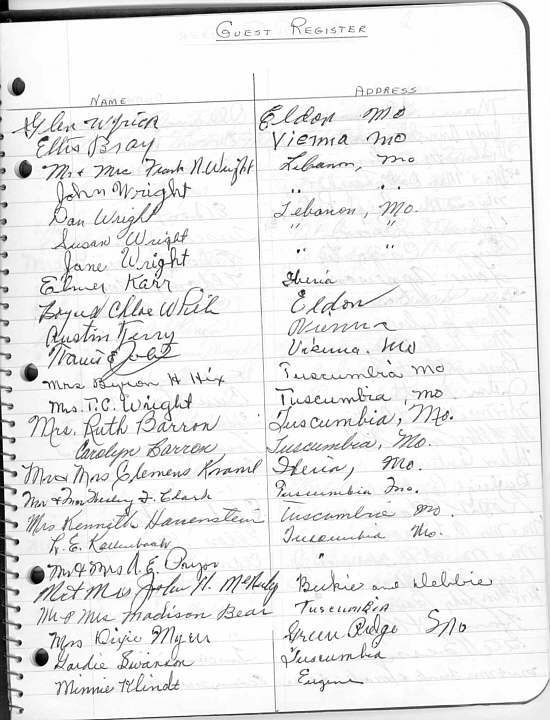 Guest Register
Name Address
Glen Wyrick Eldon Mo
Ellis Bray Vienna Mo
Mr. & Mrs. Frank N. Wright Lebanon, Mo
John Wright " "
Dan Wright Lebanon, Mo.
Susan Wright " "
Jane Wright " "
Elmer Karr Iberia
Chloe White Eldon
Austin Terry Vienna
Travis Vienna. Mo
Mrs Byron H Hix Tuscumbia Mo
Mrs. T.C. Wright Tuscumbia, Mo
Mrs. Ruth Barron Tuscumbia, Mo.
Carolyn Barron Tuscumbia, Mo.
Mr & Mrs Clemens Kraml Iberia, Mo.
Mr & Mrs Wesley J. Clark Tuscumbia Mo.
Mrs Kenneth Hauenstein Tuscumbia Mo.
L. E. Kallenbach Tuscumbia Mo.
Mr & Mrs A. E. Pryor "
Mr & Mrs John N. Beckie and Debbie
Mr & Mrs Madison Bear Tuscumbia
Mrs Dixie Myers Green Ridge Mo
Gardie Swanson Tuscumbia
Minnie Klindt Eugene